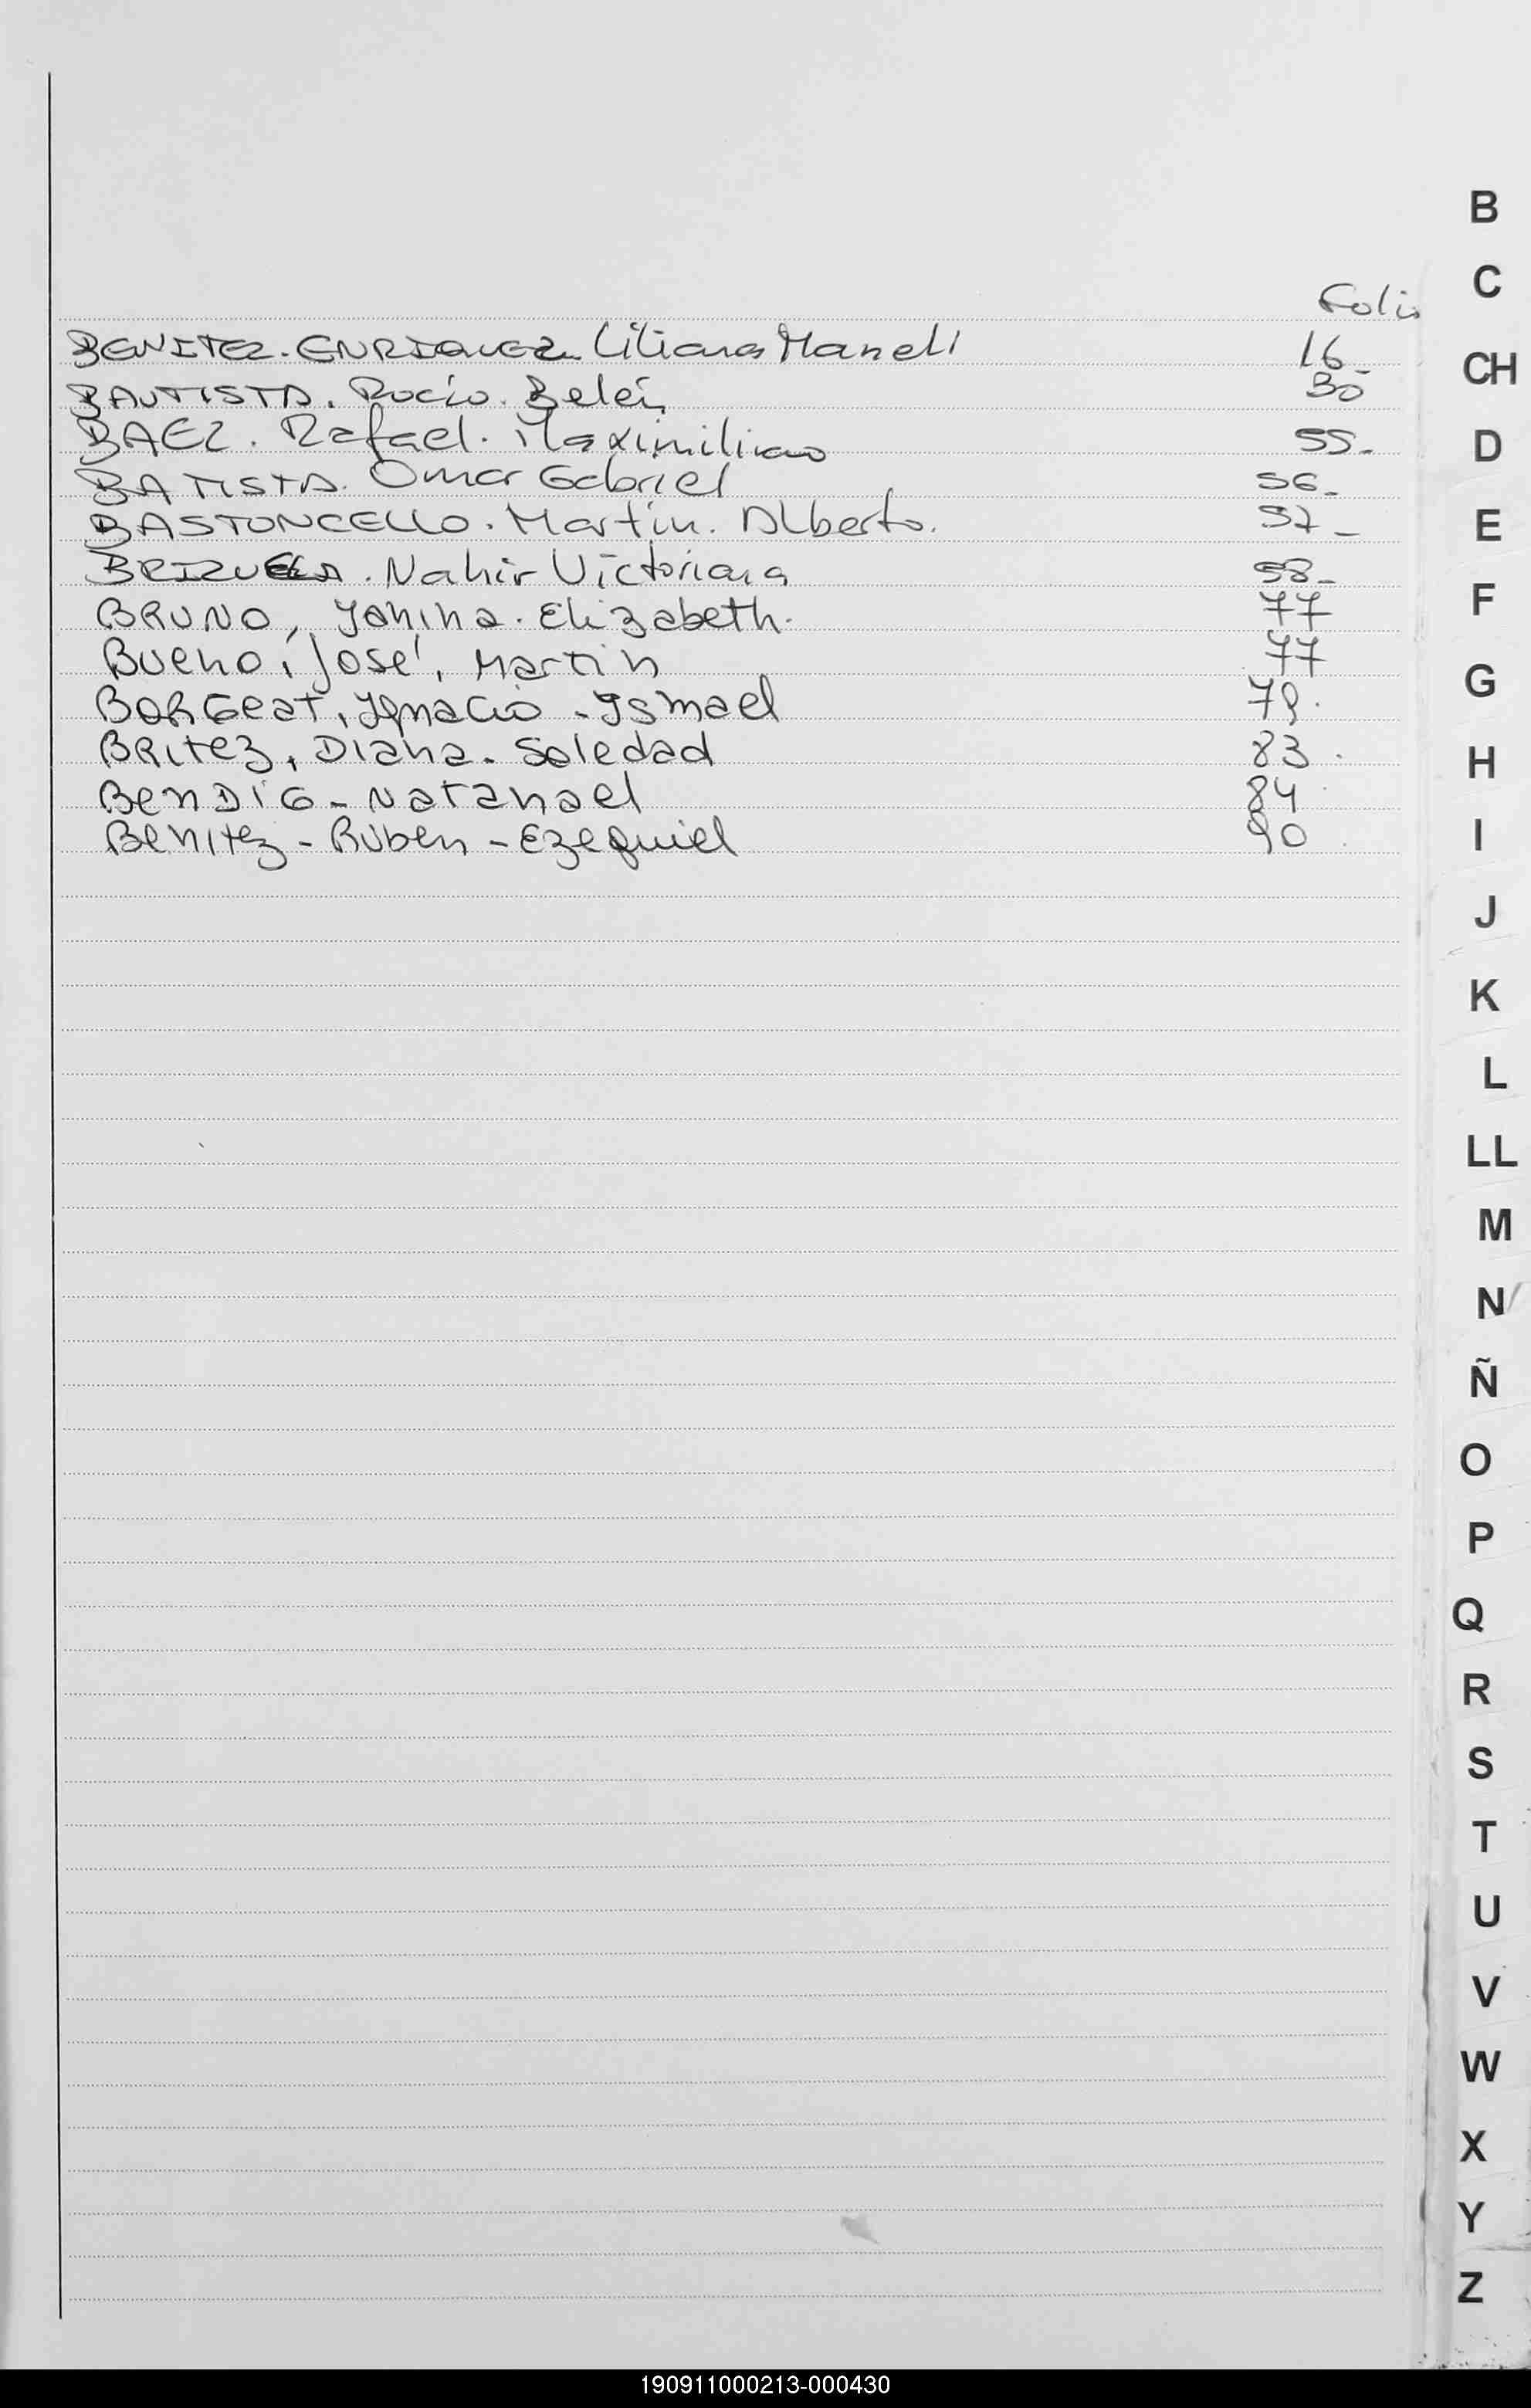 Folio
BENITEZ. ENRIQUEZ Liliana Maneli 16_
BAUTISTA. Rocío. Belén 30
BAEZ. Rafael. Maximiliano 55_
BATISTA. Omar Gabriel 56_
BASTONCELLO. Martin. Alberto. 57_
BRIZUELA. Nahir Victoriana 58_
BRUNO, Janina. Elizabeth. 77
Bueno, José, Martin 77
BORGeat, Ignacio - Ismael 79.
BRitez, Diana. Soledad 83.
BenDiG - Natanael 84.
Benitez - Ruben - Ezequiel 90.
B
C
CH
D
E
F
G
H
I
J
K
L
LL
M
N
Ñ
O
P
Q
R
S
T
U
V
W
X
Y
Z
190911000213-000430